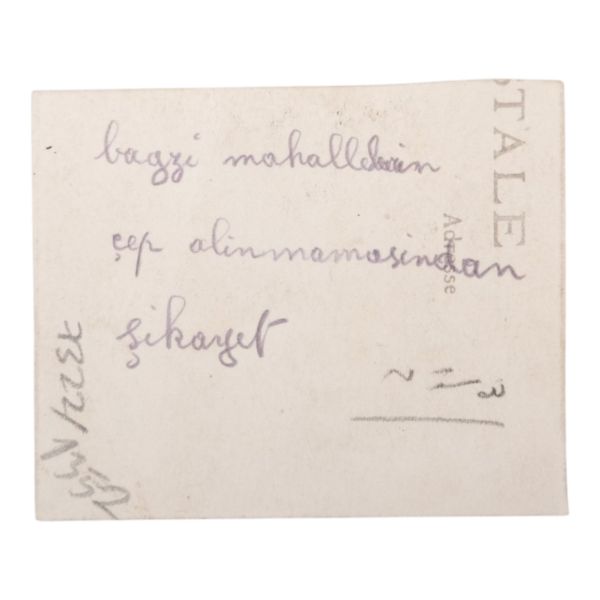 bagzi mahallerin
çep alinmamasindan
şikayet
STALE
Adresse